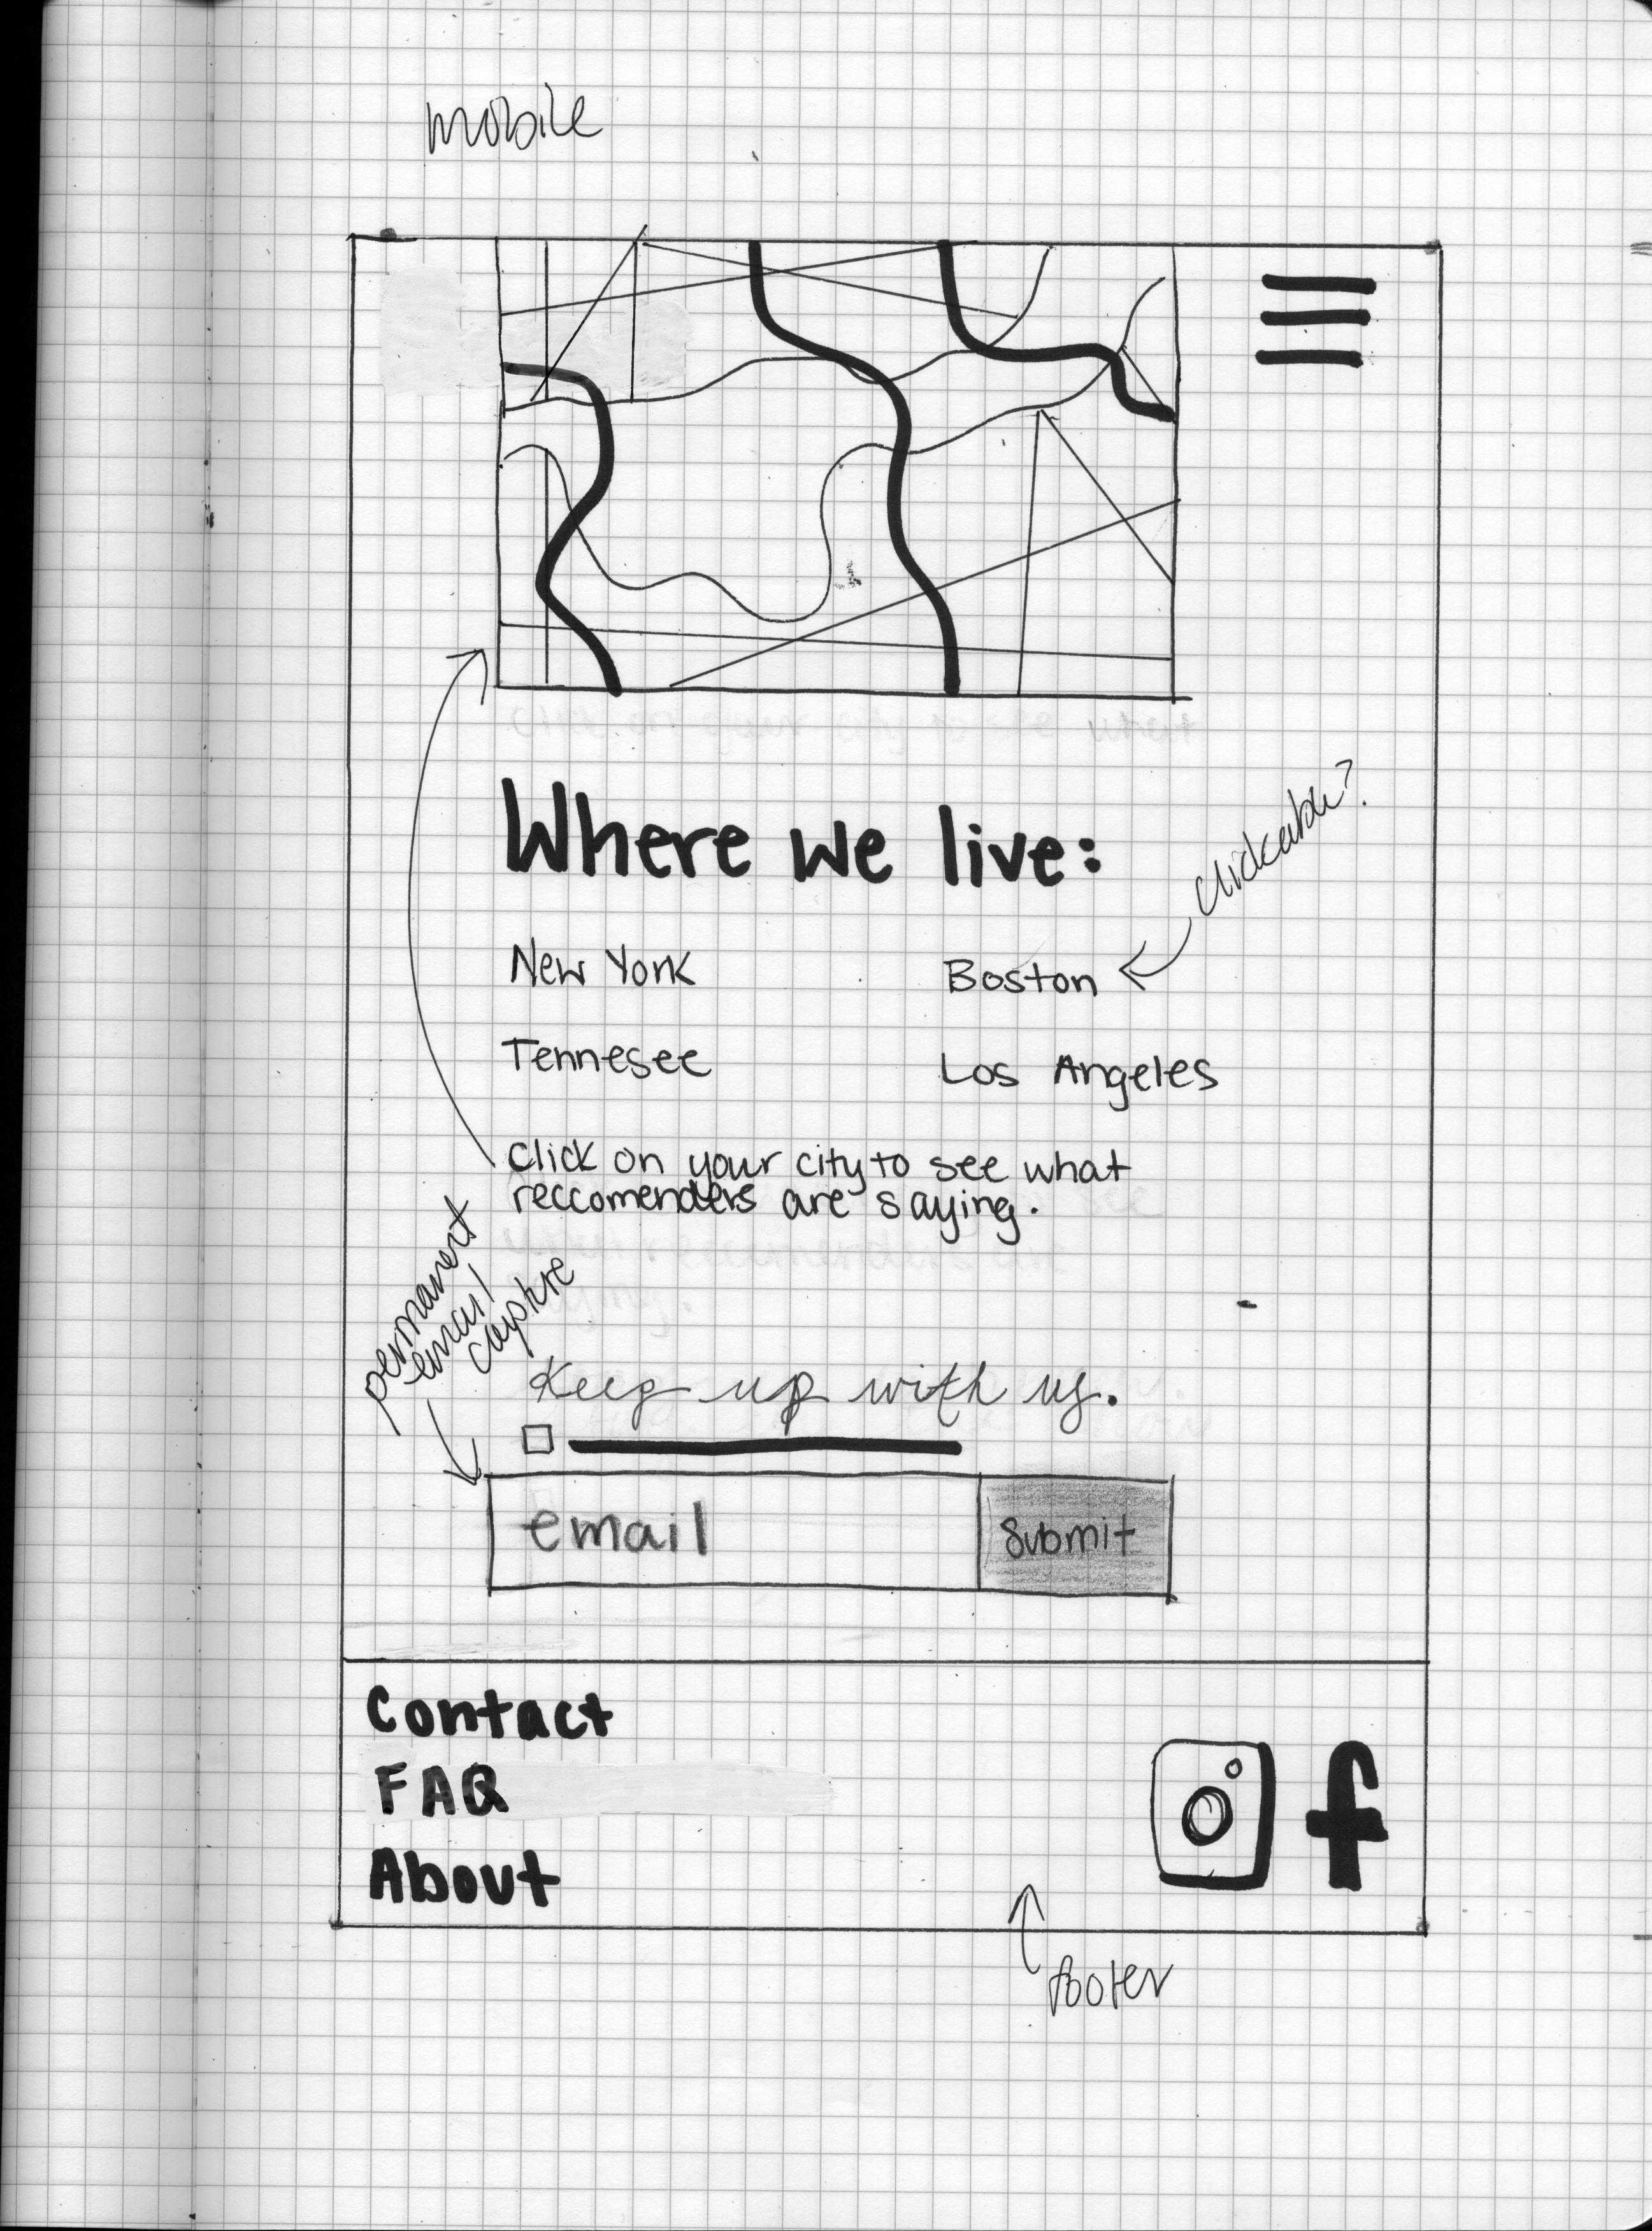 mobile
Where we live:
clickable?
New York
Boston
Tennesee
Los Angeles
Click on your city to see what
reccomenders are saying.
permanent
email
capture
Keep up with us.
email
Submit
Contact
FAQ
About
f
footer